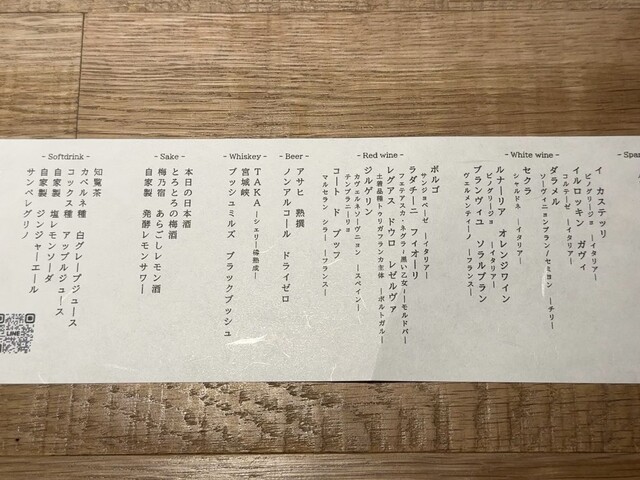 - Spar
- White wine -
イ カステッリ
ピノグリージョ ーイタリアー
イルロッキン ガヴィ
コルテーゼ ーイタリアー
ダラメル
ソーヴィニヨンブラン/セミヨン ーチリー
セクラ
シャルドネ ーイタリアー
ルナーリア オレンジワイン
ピノグリージョ ーイタリアー
ブランヴィユ ソラルブラン
ヴェルメンティーノ ーフランスー
- Red wine -
ボルゴ
サンジョベーゼ ーイタリアー
ラダチーニ フィオーリ
フェテアスカ・ネグラ(黒い乙女) ーモルドバー
レア ドウロ レゼルヴァ
土着品種トゥリガフランカ主体 ーポルトガルー
ジルゲリン
カヴェルネソーヴニヨン ースペインー
テンプラニーリョ
コート ド ブッフ
マルセラン シラー ーフランスー
- Beer -
アサヒ 熟撰
ノンアルコール ドライゼロ
- Whiskey -
TAKA ーシェリー樽熟成ー
宮城峡
ブッシュミルズ ブラックブッシュ
- Sake -
本日の日本酒
とろとろの梅酒
梅乃宿 あらごしレモン酒
自家製 発酵レモンサワー
- Softdrink -
知覧茶
カベルネ種 白グレープジュース
コックス種 アップルジュース
自家製 塩レモンソーダ
自家製 ジンジャーエール
サンペレグリノ
LINE